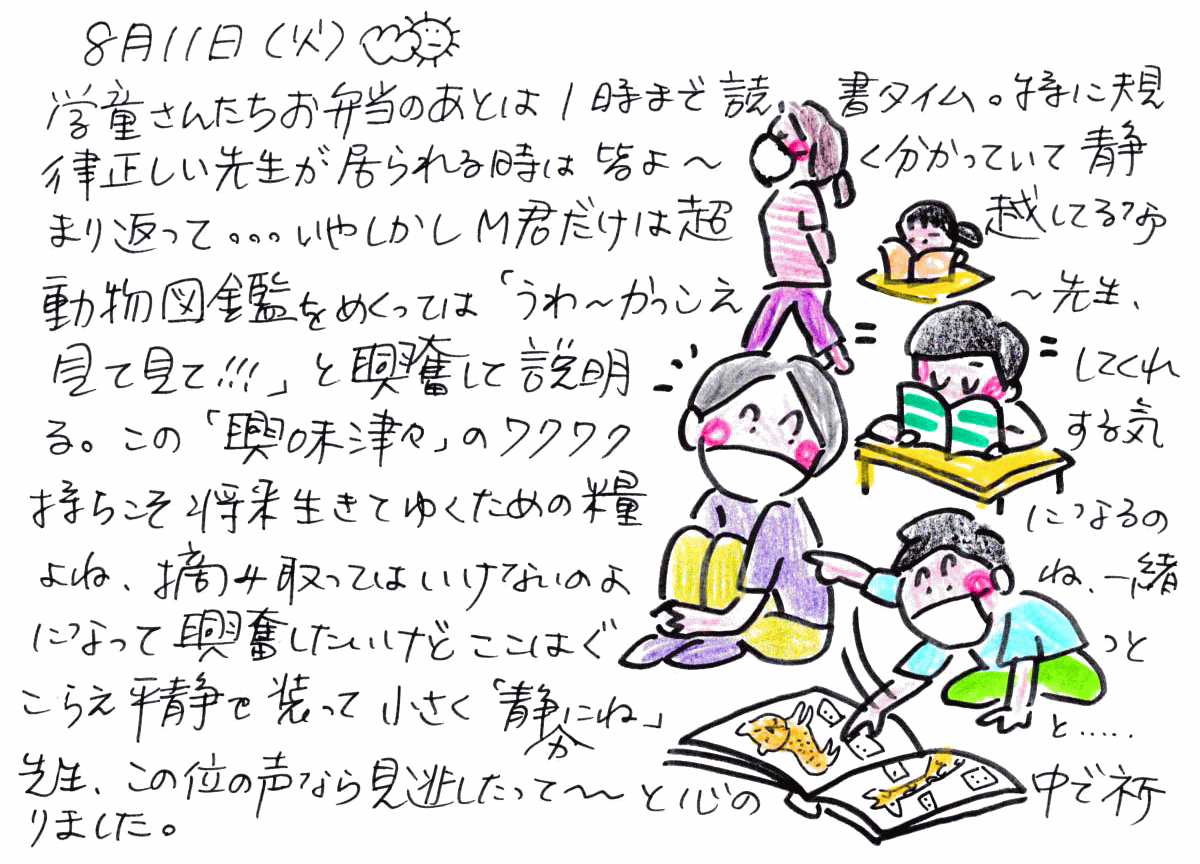 8月11日(火)
学童さんたちお弁当のあとは1時まで読書タイム。特に規
律正しい先生が居られる時は皆よ～く分かっていて静
まり返って。。。いやしかしM君だけは超越してるなぁ
動物図鑑をめくっては「うわ～かっこえ～先生、
見て見て!!!」と興奮して説明してくれ
る。この「興味津々」のワクワクする気
持ちこそ将来生きてゆくための糧になるの
よね、摘み取ってはいけないのよね、一緒
になって興奮したいけどここはぐっと
こらえ平静を装って小さく「静かにね」と.....
先生、この位の声なら見逃したって～～と心の中で祈
りました。